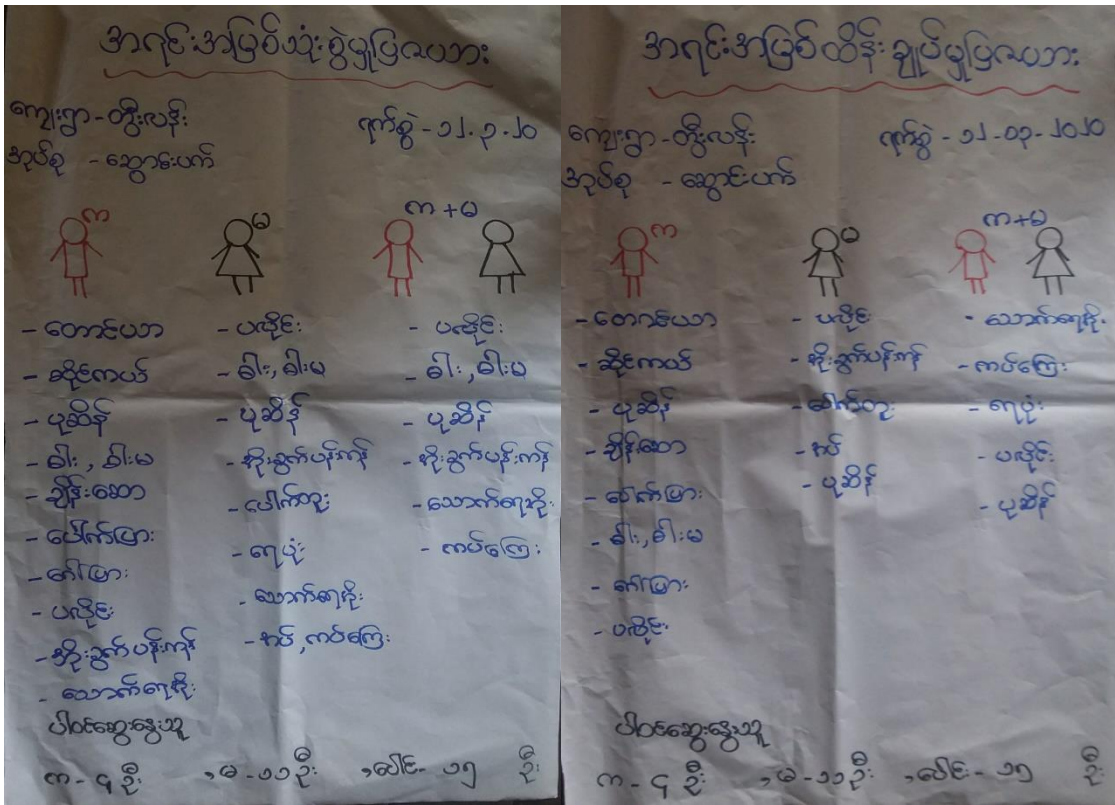 အရင်းအမြစ်သုံးစွဲမှုပြဇယား
ကျေးရွာ - တွီးလန်း
ရက်စွဲ - ၁၂.၃.၂၀
အုပ်စု - ဆွောင်းပက်
က
မ
က + မ
- တောင်ယာ
- ဆိုင်ကယ်
- ပုဆိန်
- ဓါး, ဓါးမ
- ချိန်းဆော
- ပေါက်ပြား
- ဂေါ်ပြား
- ပလိုင်း
- အိုးခွက်ပန်းကန်
- သောက်ရေအိုး
- ပလိုင်း
- ဓါး, ဓါးမ
- ပုဆိန်
- အိုးခွက်ပန်းကန်
- ပေါက်တူး
- ရေပုံး
- သောက်ရေအိုး
- အပ်, ကပ်ကြေး
- ပလိုင်း
- ဓါး, ဓါးမ
- ပုဆိန်
- အိုးခွက်ပန်းကန်
- သောက်ရေအိုး
- ကပ်ကြေး
ပါဝင်ဆွေးနွေးသူ
က - ၄ ဦး , မ - ၁၁ ဦး , ပေါင်း - ၁၅ ဦး
အရင်းအမြစ်ထိန်းချုပ်မှုပြဇယား
ကျေးရွာ - တွီးလန်း
ရက်စွဲ - ၁၂-၀၃-၂၀၂၀
အုပ်စု - ဆွောင်းပက်
က
မ
က+မ
- တောင်ယာ
- ဆိုင်ကယ်
- ပုဆိန်
- ချိန်းဆော
- ပေါက်ပြား
- ဓါး, ဓါးမ
- ဂေါ်ပြား
- ပလိုင်း
- ပလိုင်း
- အိုးခွက်ပန်းကန်
- ပေါက်တူး
- အပ်
- ပုဆိန်
- သောက်ရေအိုး
- ကပ်ကြေး
- ရေပုံး
- ပလိုင်း
- ပုဆိန်
ပါဝင်ဆွေးနွေးသူ
က - ၄ ဦး , မ - ၁၁ ဦး , ပေါင်း - ၁၅ ဦး